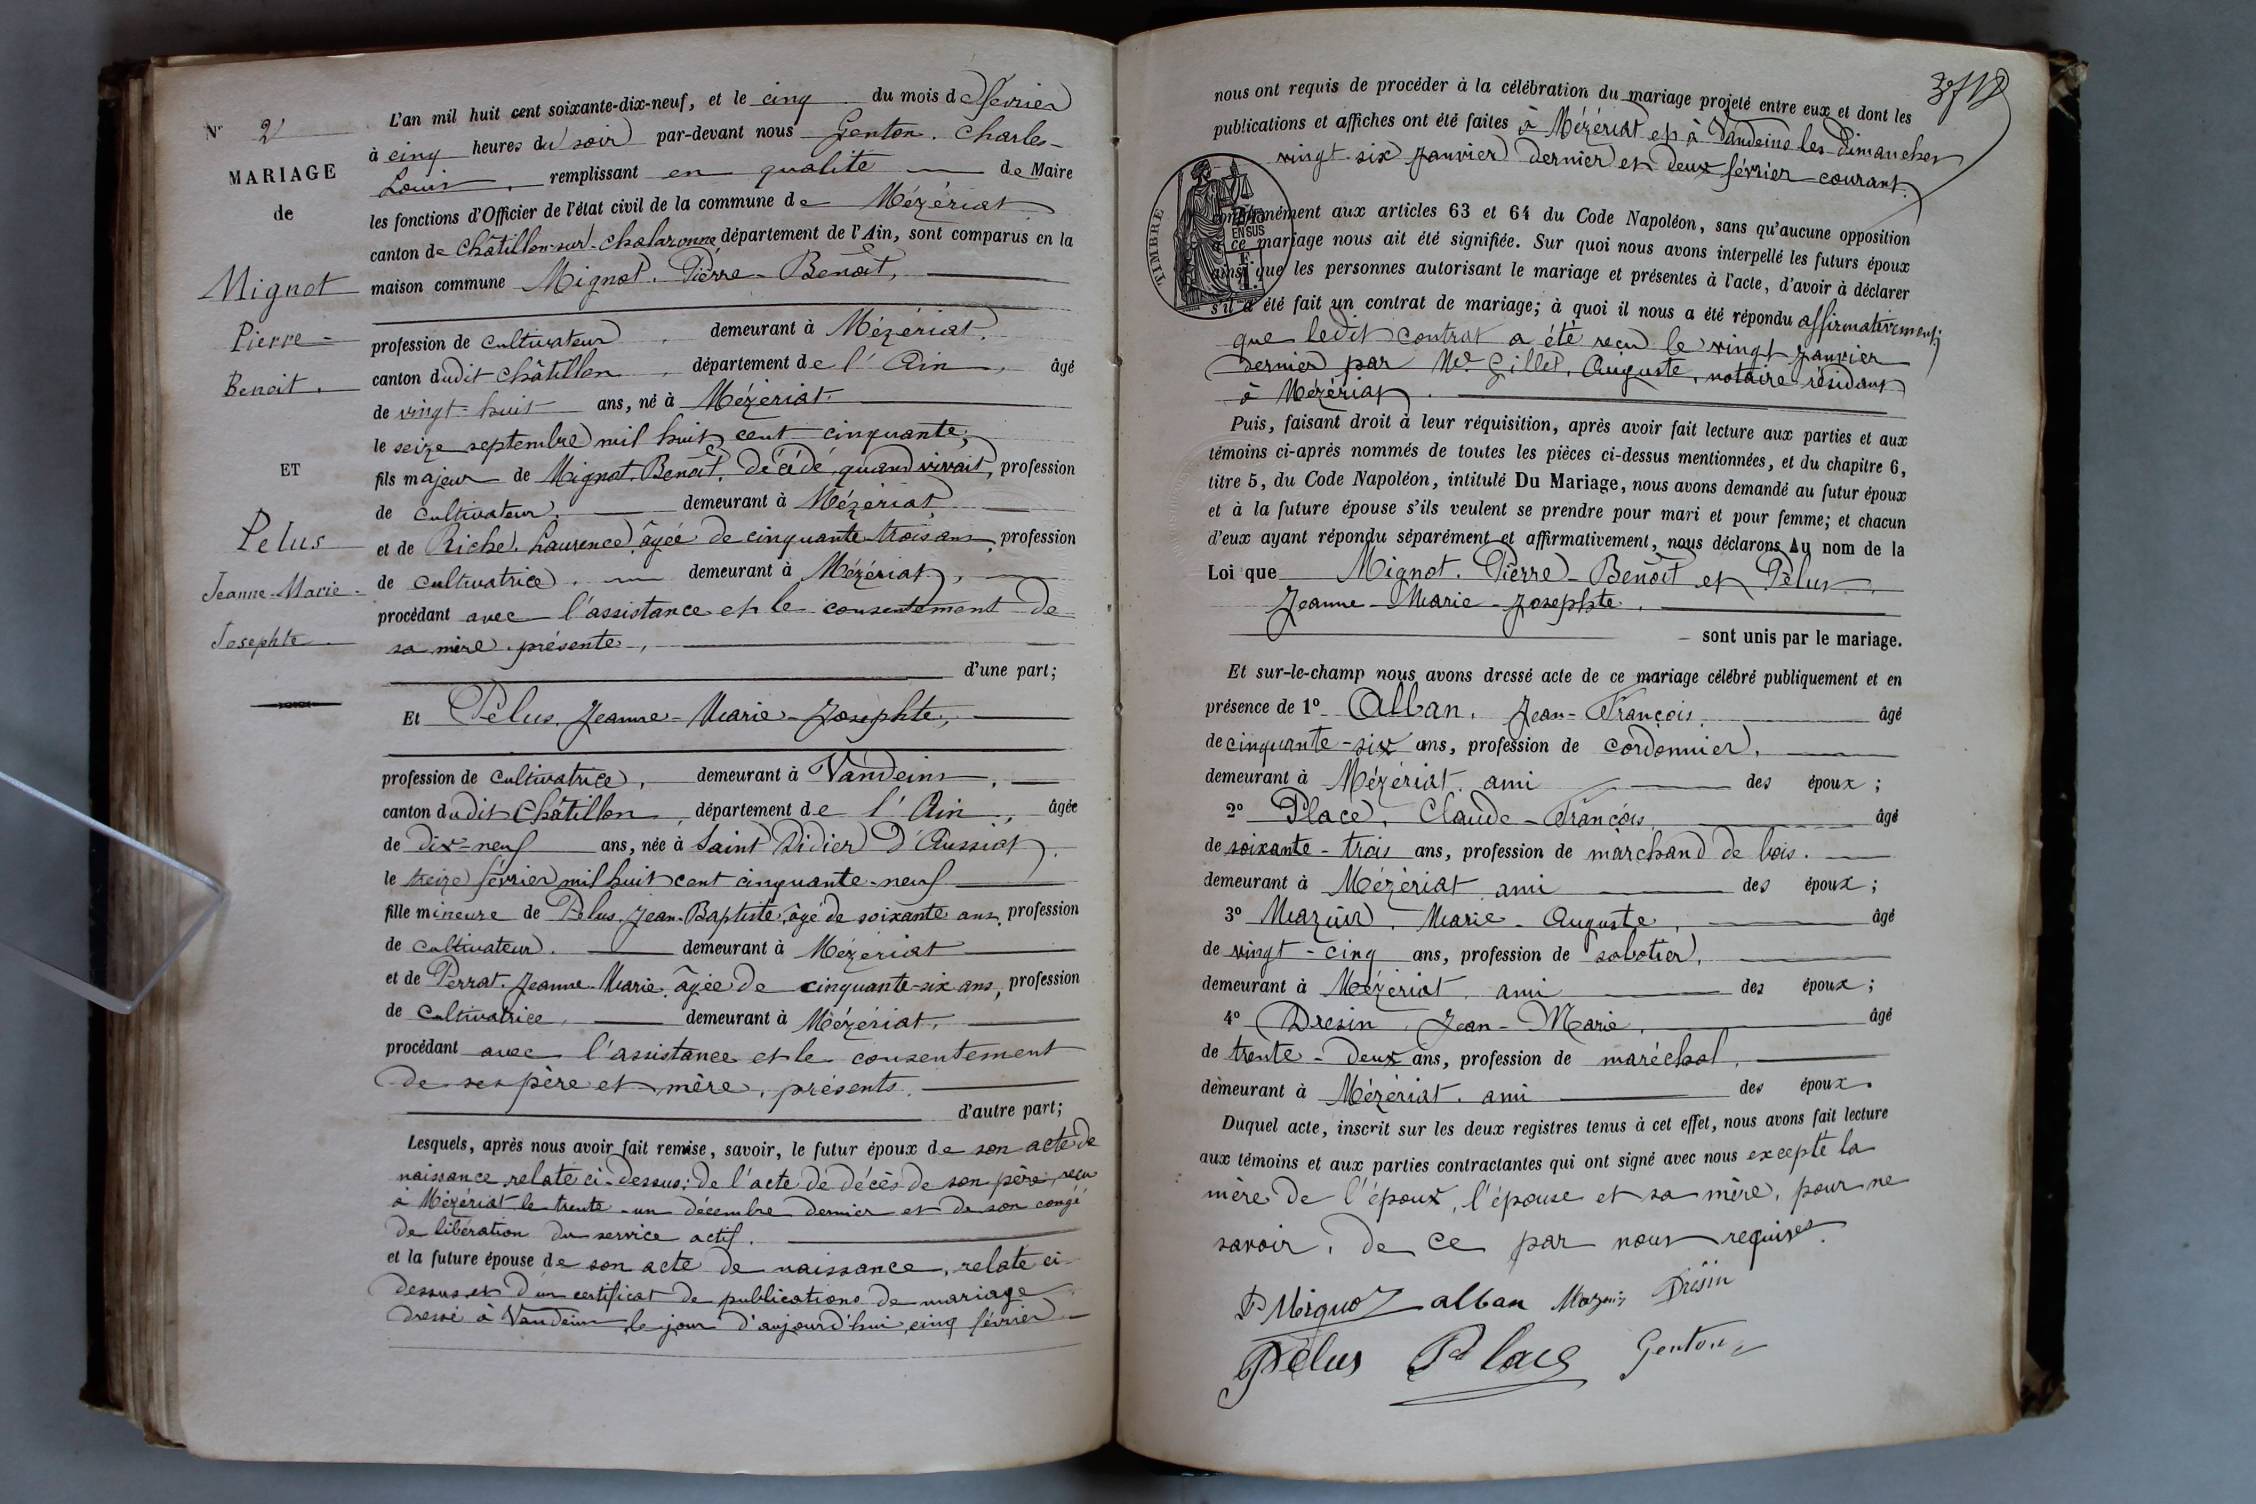 N° 2
MARIAGE
de
Mignot
Pierre
Benoit.
ET
Pelus
Jeanne-Marie-
Josephte
L'an mil huit cent soixante-dix-neuf, et le cinq du mois de février
à cinq heures du soir par-devant nous Genton. Charles-
Louis, remplissant en qualité de Maire
les fonctions d'Officier de l'état civil de la commune de Mézériat
canton de Châtillon-sur-Chalaronne, département de l'Ain, sont comparus en la
maison commune Mignot. Pierre-Benoît,
profession de cultivateur, demeurant à Mézériat,
canton dudit Châtillon, département de l'Ain, âgé
de vingt-huit ans, né à Mézériat.
le seize septembre mil huit cent cinquante,
fils majeur de Mignot. Benoît, décédé, quand vivait, profession
de cultivateur, demeurant à Mézériat,
et de Riche. Laurence, âgée de cinquante-trois ans, profession
de cultivatrice, demeurant à Mézériat,
procédant avec l'assistance et le consentement de
sa mère présente,
d'une part;
Et Pelus, Jeanne-Marie-Josephte,
profession de cultivatrice, demeurant à Vandeins,
canton dudit Châtillon, département de l'Ain, âgée
de dix-neuf ans, née à Saint Didier D'Aussiat,
le treize février mil huit cent cinquante-neuf
fille mineure de Pelus, Jean-Baptiste, âgé de soixante ans, profession
de cultivateur. demeurant à Mézériat
et de Perrat. Jeanne-Marie, âgée de cinquante-six ans, profession
de cultivatrice, demeurant à Mézériat,
procédant avec l'assistance et le consentement
de ses père et mère, présents.
d'autre part;
Lesquels, après nous avoir fait remise, savoir, le futur époux de son acte de
naissance relaté ci-dessus; de l'acte de décès de son père, reçu
à Mézériat le trente-un décembre dernier et de son congé
de libération du service actif.
et la future épouse de son acte de naissance, relaté ci-
dessus et d'un certificat de publications de mariage
dressé à Vandeins le jour d'aujourd'hui cinq février
nous ont requis de procéder à la célébration du mariage projeté entre eux et dont les
publications et affiches ont été faites à Mézériat et à Vandeins les Dimanches
vingt-six janvier dernier et deux février courant.
TIMBRE
EN SUS
conformément aux articles 63 et 64 du Code Napoléon, sans qu'aucune opposition
à ce mariage nous ait été signifiée. Sur quoi nous avons interpellé les futurs époux
ainsi que les personnes autorisant le mariage et présentes à l'acte, d'avoir à déclarer
s'il a été fait un contrat de mariage; à quoi il nous a été répondu affirmativement;
que ledit contrat a été reçu le vingt janvier
dernier par Me Gillet. Auguste, notaire résidant
à Mézériat.
Puis, faisant droit à leur réquisition, après avoir fait lecture aux parties et aux
témoins ci-après nommés de toutes les pièces ci-dessus mentionnées, et du chapitre 6,
titre 5, du Code Napoléon, intitulé Du Mariage, nous avons demandé au futur époux
et à la future épouse s'ils veulent se prendre pour mari et pour femme; et chacun
d'eux ayant répondu séparément et affirmativement, nous déclarons Au nom de la
Loi que Mignot. Pierre-Benoît et Pelus
Jeanne-Marie-Josephte,
sont unis par le mariage.
Et sur-le-champ nous avons dressé acte de ce mariage célébré publiquement et en
présence de 1° Alban, Jean-François, âgé
de cinquante-six ans, profession de cordonnier,
demeurant à Mézériat, ami des époux;
2° Place, Claude-François, âgé
de soixante-trois ans, profession de marchand de bois.
demeurant à Mézériat ami des époux;
3° Mazuir, Marie-Auguste, âgé
de vingt-cinq ans, profession de sabotier,
demeurant à Mézériat, ami des époux;
4° Dresin, Jean-Marie, âgé
de trente-deux ans, profession de maréchal,
demeurant à Mézériat. ami des époux.
Duquel acte, inscrit sur les deux registres tenus à cet effet, nous avons fait lecture
aux témoins et aux parties contractantes qui ont signé avec nous excepté la
mère de l'époux, l'épouse et sa mère, pour ne
savoir, de ce par nous requises.
P Mignot alban Mazuir Dresin
Pélus Place Genton